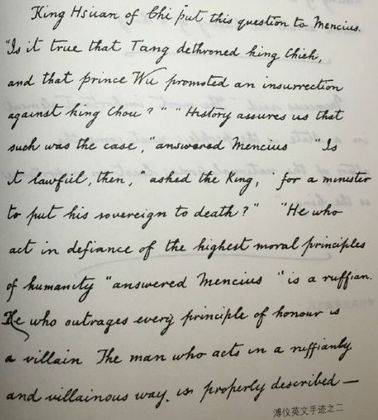 King Hsüan of Chi put this question to Mencius.
"Is it true that Tang dethroned king Chieh,
and that prince Wu promoted an insurrection
against king Chou?" "History assures us that
such was the case," answered Mencius "Is
it lawful, then," asked the King, "for a minister
to put his sovereign to death?" "He who
act in defiance of the highest moral principles
of humanity" answered Mencius "is a ruffian.
He who outrages every principle of honour is
a villain The man who acts in a ruffianly
and villainous way. is properly described—
溥仪英文手迹之二